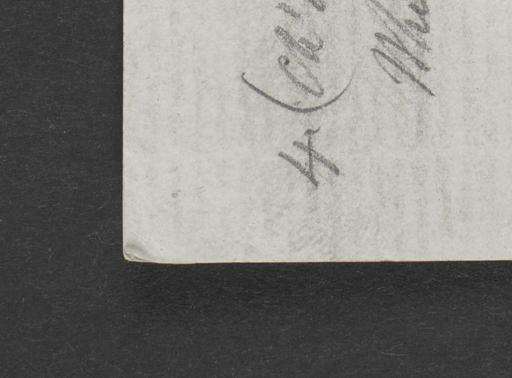 4. (Ch
Whi